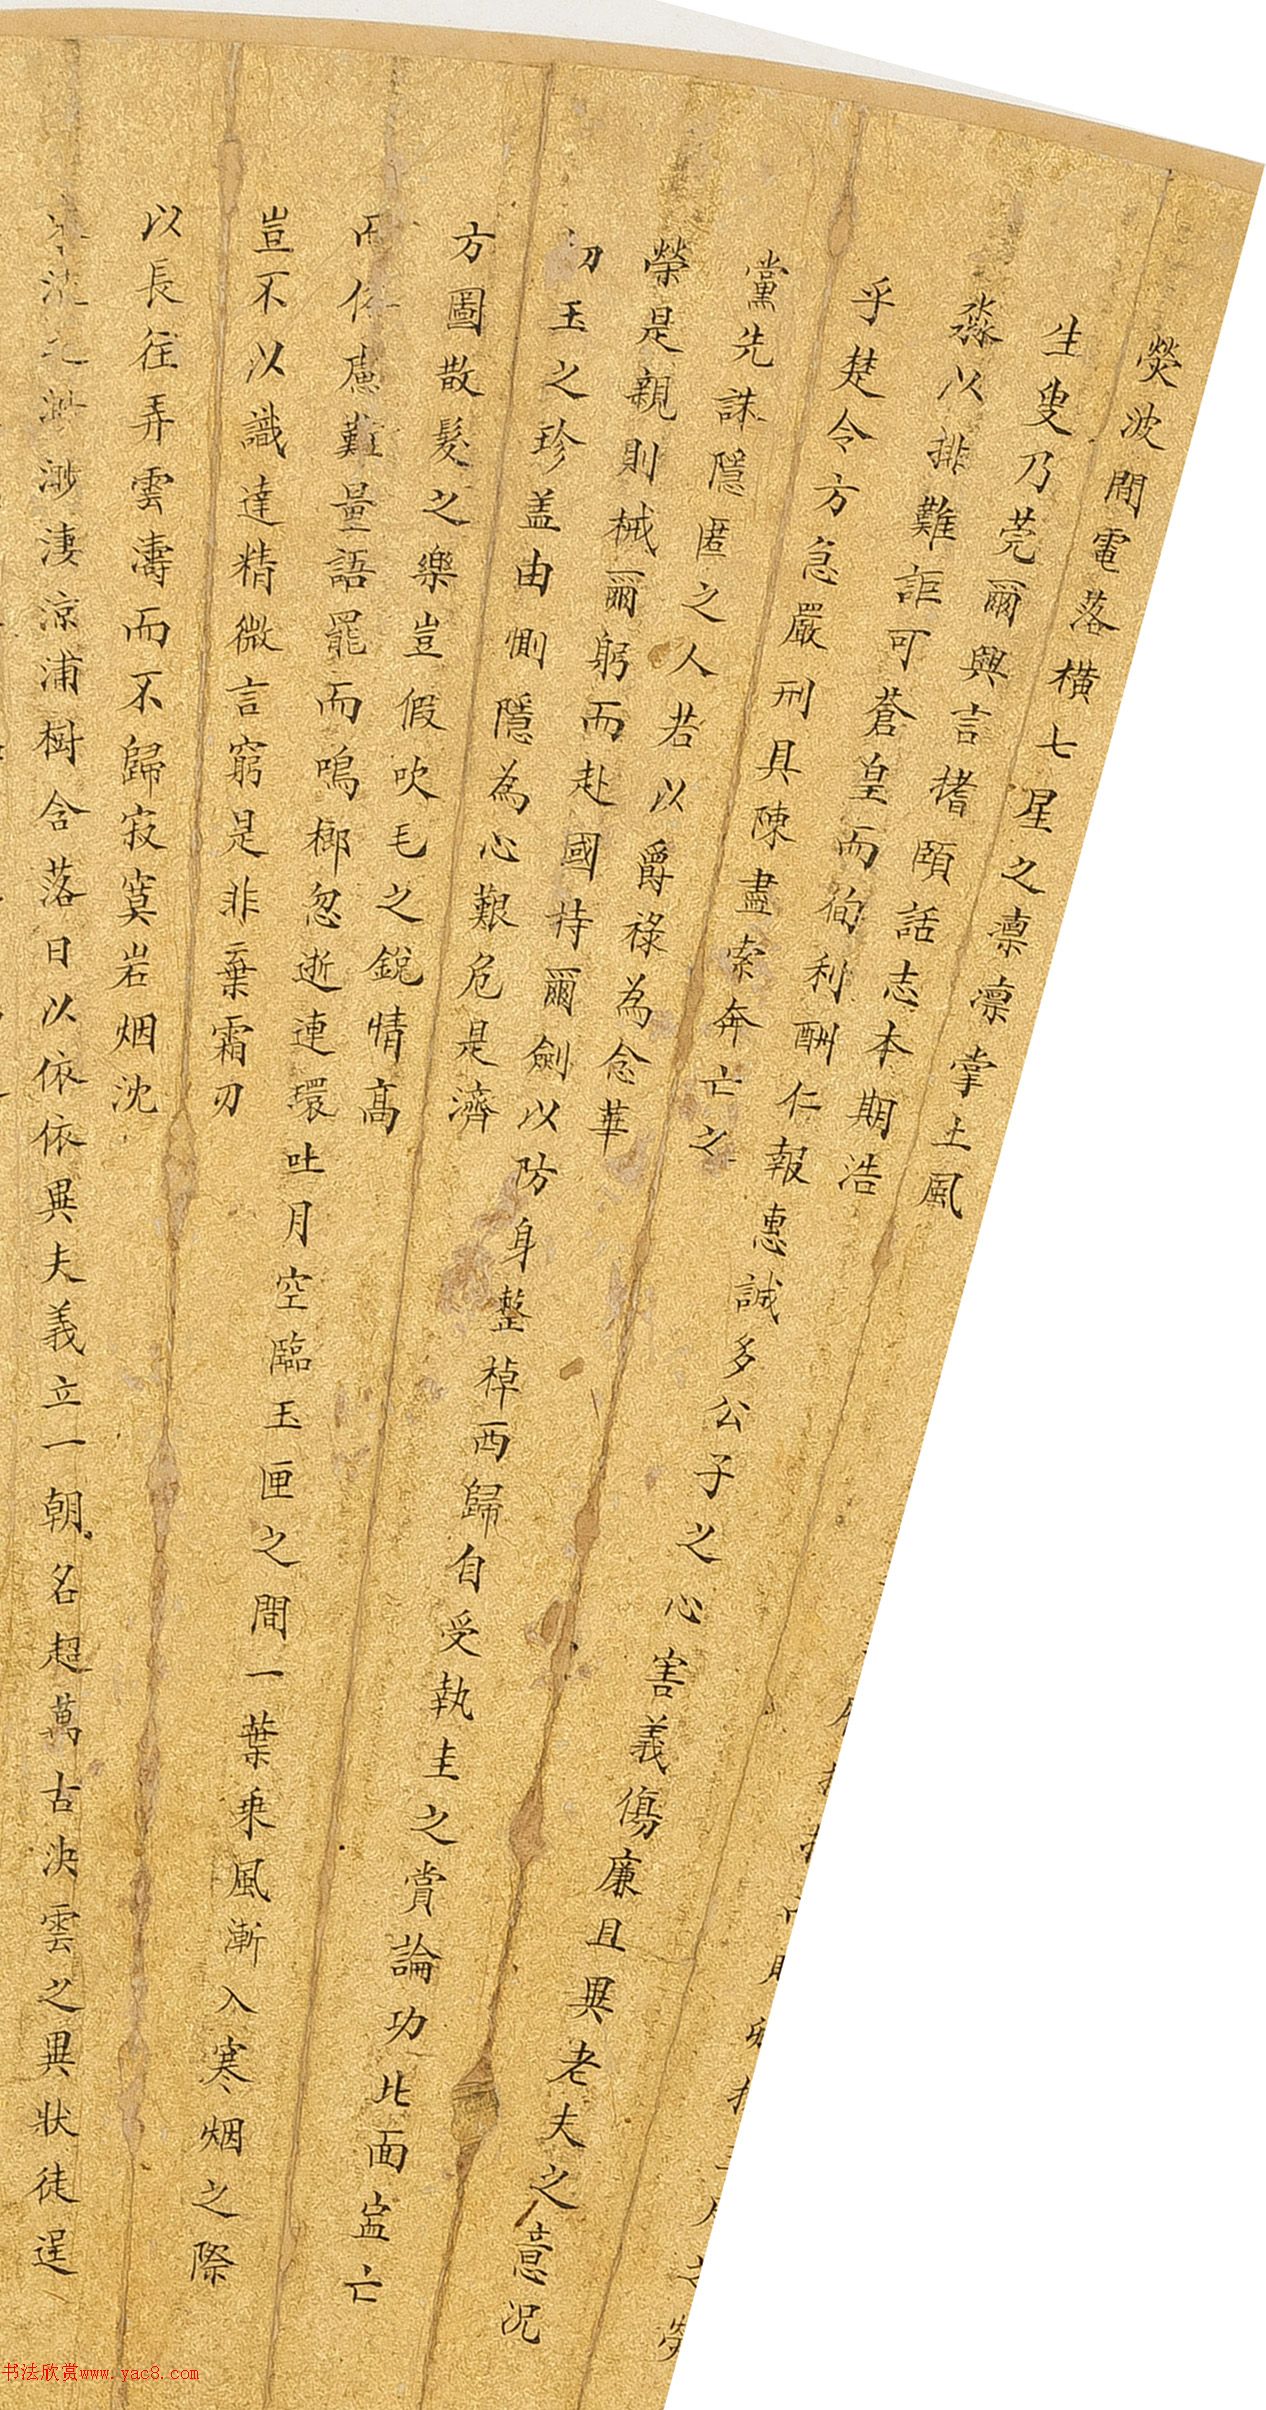 熒波間電落橫七星之凛凛掌上風
生叟乃莞爾興言搘頤話志本期浩
淼以排難詎可蒼皇而徇利酬仁報惠誠多公子之心害義傷廉且異老夫之意况
乎楚令方急嚴刑具陳盡索奔亡之
黨先誅隱匿之人若以爵祿為念華
榮是親則械爾躬而赴國持爾劍以防身整棹西歸自受執圭之賞論功北面寍亡
切玉之珍盖由惻隱為心艱危是濟
方圖散髮之樂豈假吹毛之銳情高
而俗慮難量語罷而鳴榔忽逝連環吐月空臨玉匣之間一葉乗風漸入寒烟之際
豈不以識達精微言窮是非棄霜刃
以長往弄雲濤而不歸寂寞岩烟沈
流之渺渺淒涼浦樹含落日以依依異夫義立一朝名超萬古决雲之異狀徒逞
书法欣赏www.yac8.com